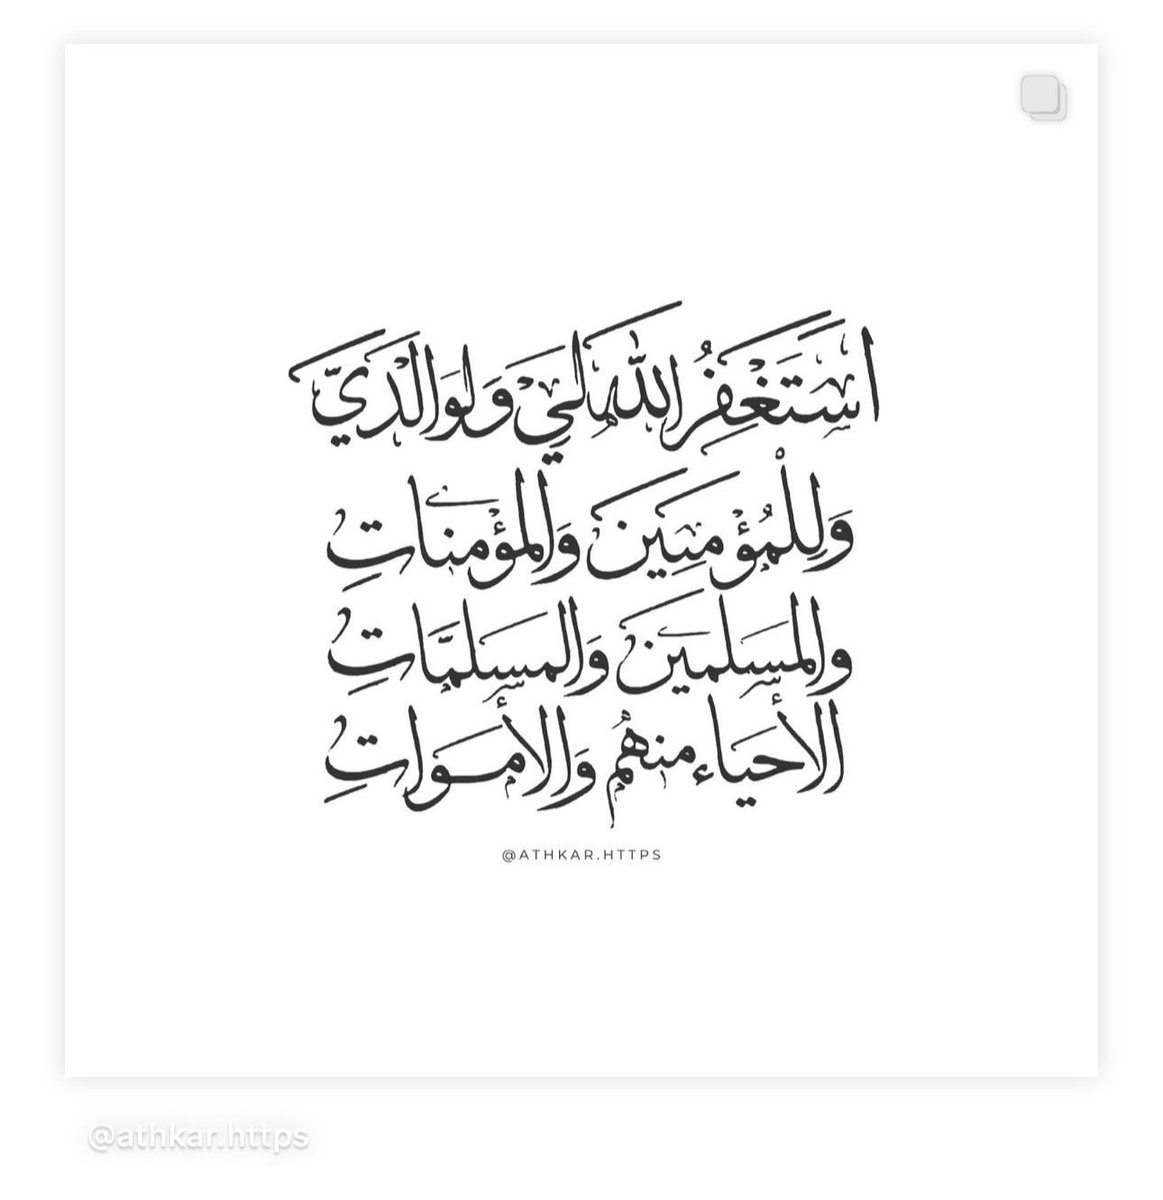 اسْتَغْفِرُ اللهَ لِي وَلِوَالِدَيَّ
وَلِلْمُؤْمِنِينَ وَالْمُؤْمِنَاتِ
وَالْمُسْلِمِينَ وَالْمُسْلِمَاتِ
الأَحْيَاءِ مِنْهُمْ وَالأَمْوَاتِ
@ATHKAR.HTTPS
@athkar.https